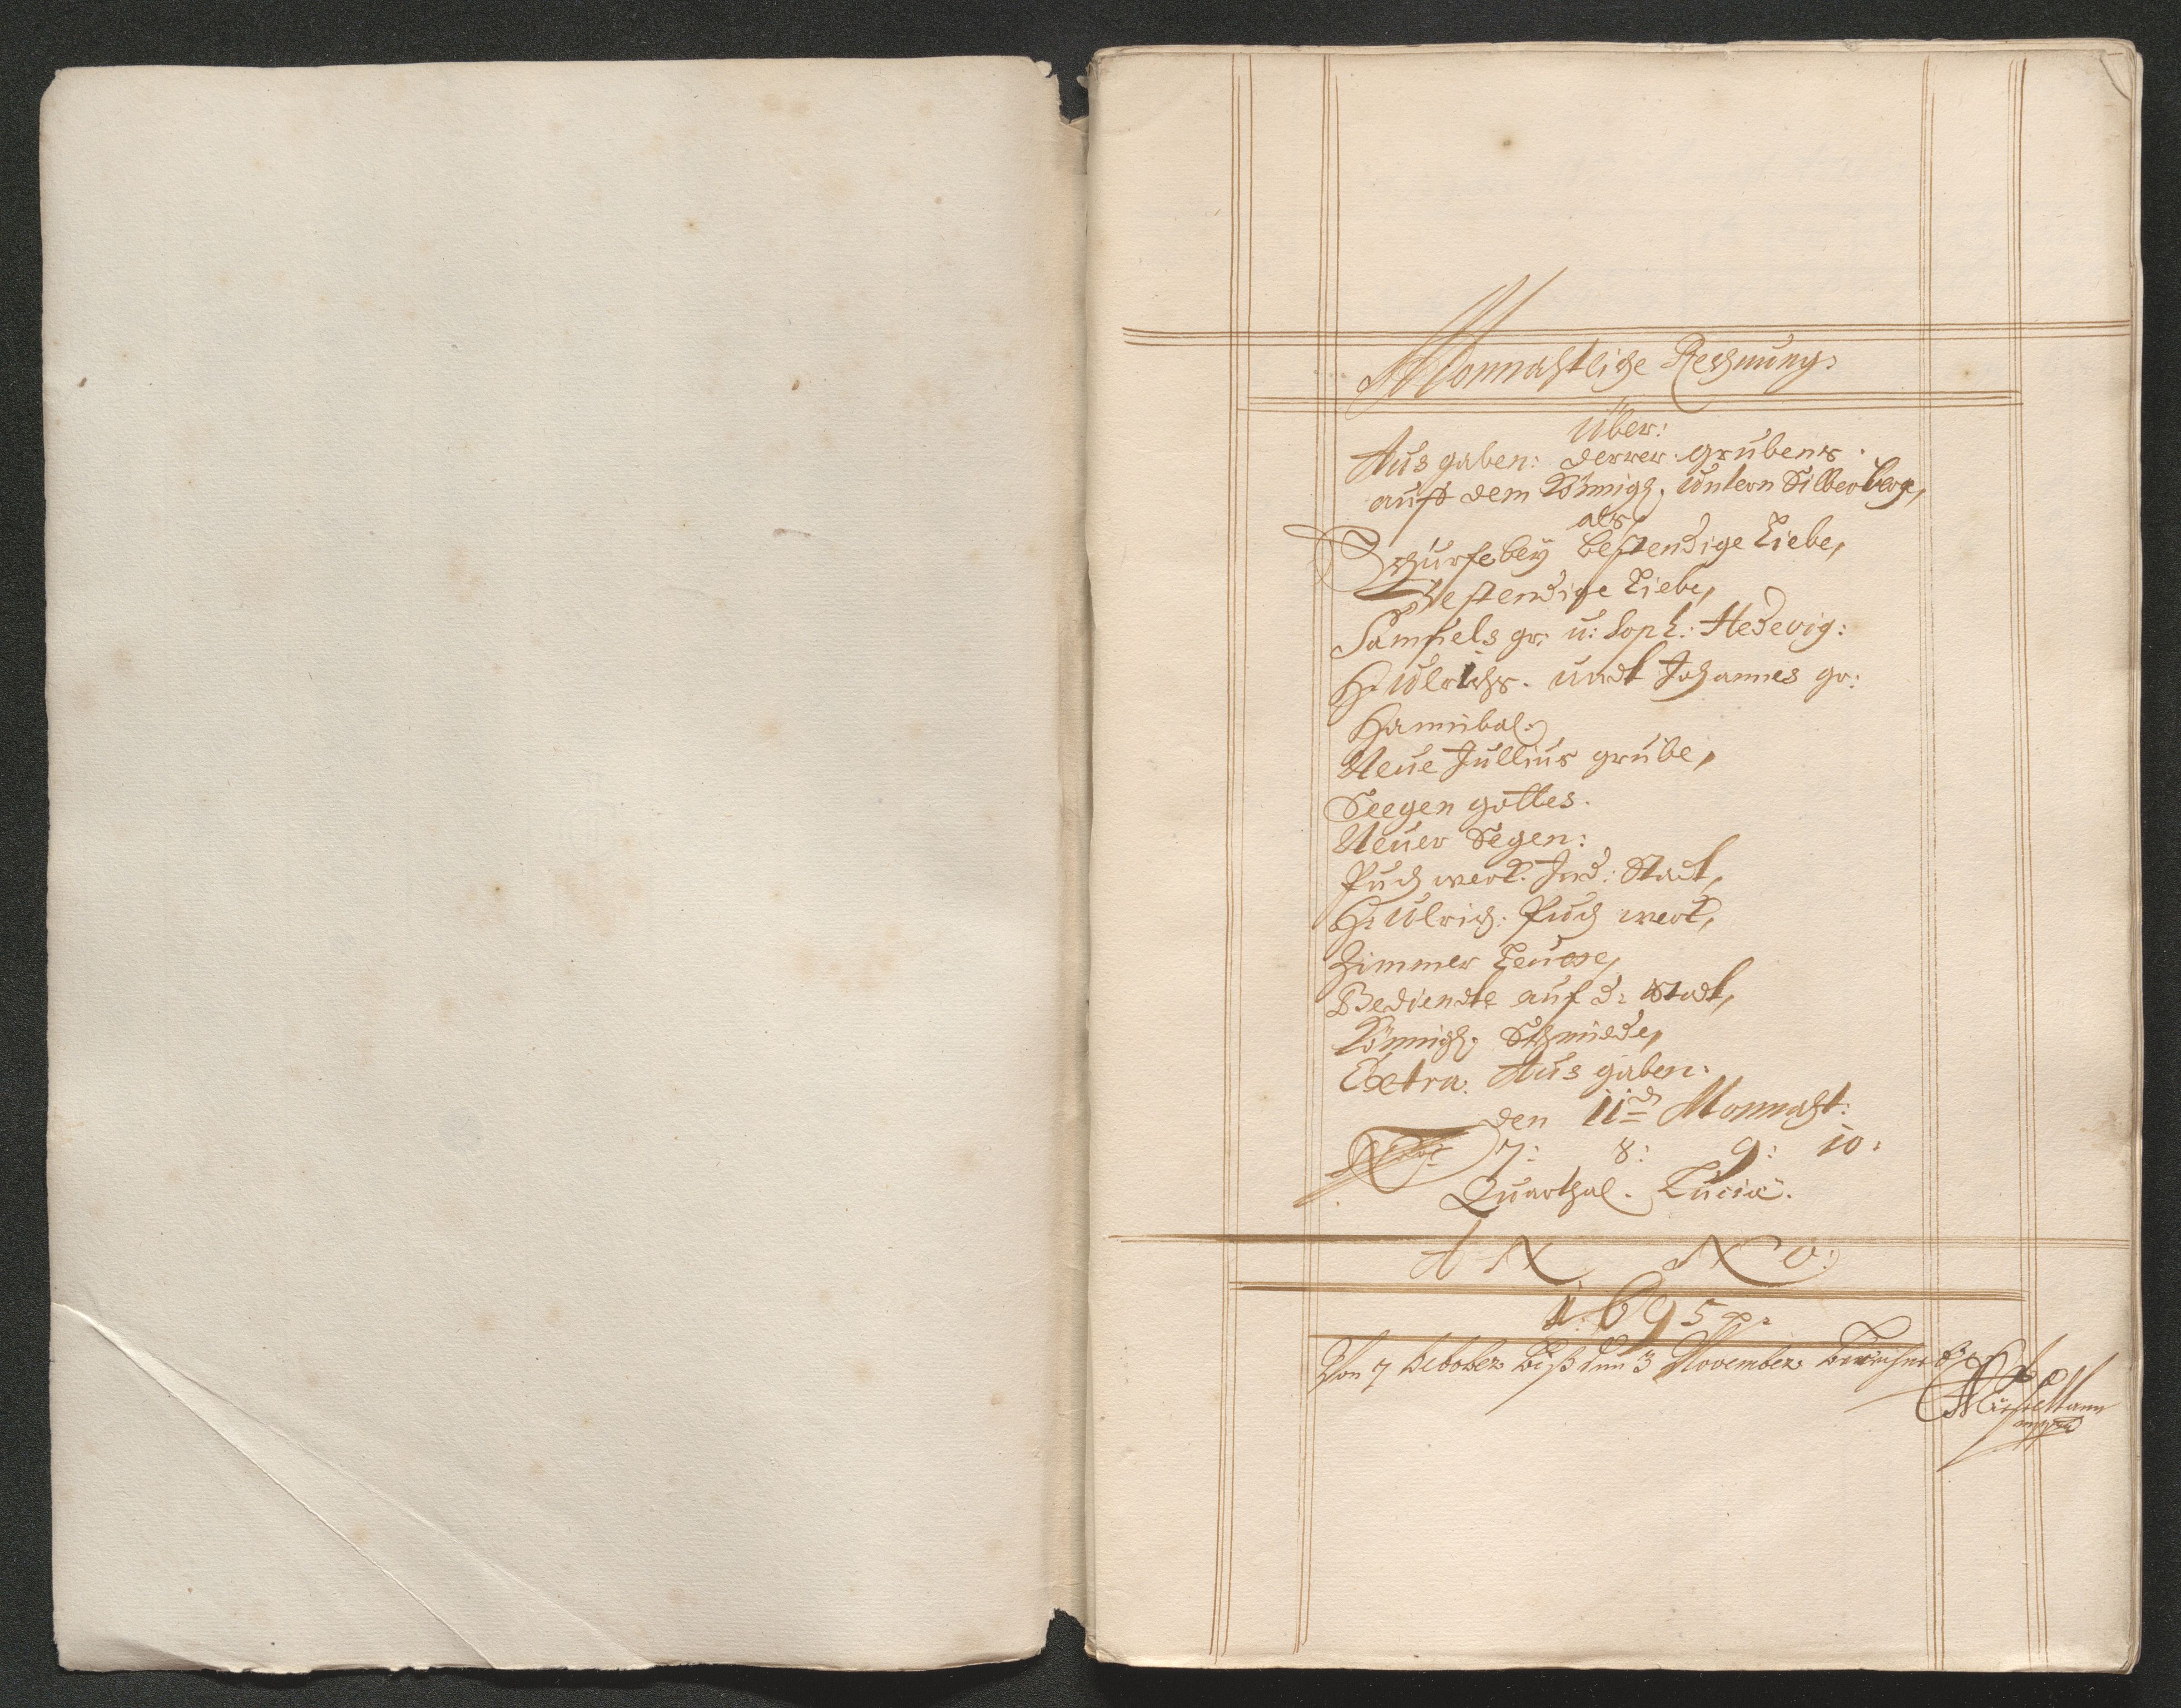 Monnahtliche Rechnung:
Über:
Ausgaben: derrer grubens.
auff dem Königl. Untern Silberberge,
als
Schurfe bey bestendige Liebe,
Bestendige Liebe,
Samuels gr: u: Soph: Hedevig:
H: Ulrichs. undt Johannes gr:
Hannibal:
Neue Jullius grube,
Seegen gottes.
Neuer Segen:
Puch werk. Ind: Stadt,
H: Ulrich: Puch werk,
Zimmer Leute,
Bediendte auf d: Stadt,
Königl: Schmiede,
Extra. Ausgaben:
den 11 Monnaht:
7: 8: 9: 10:
Quarthal. Luciæ.
A N N O:
1695
Von 7 October biß den 3 November